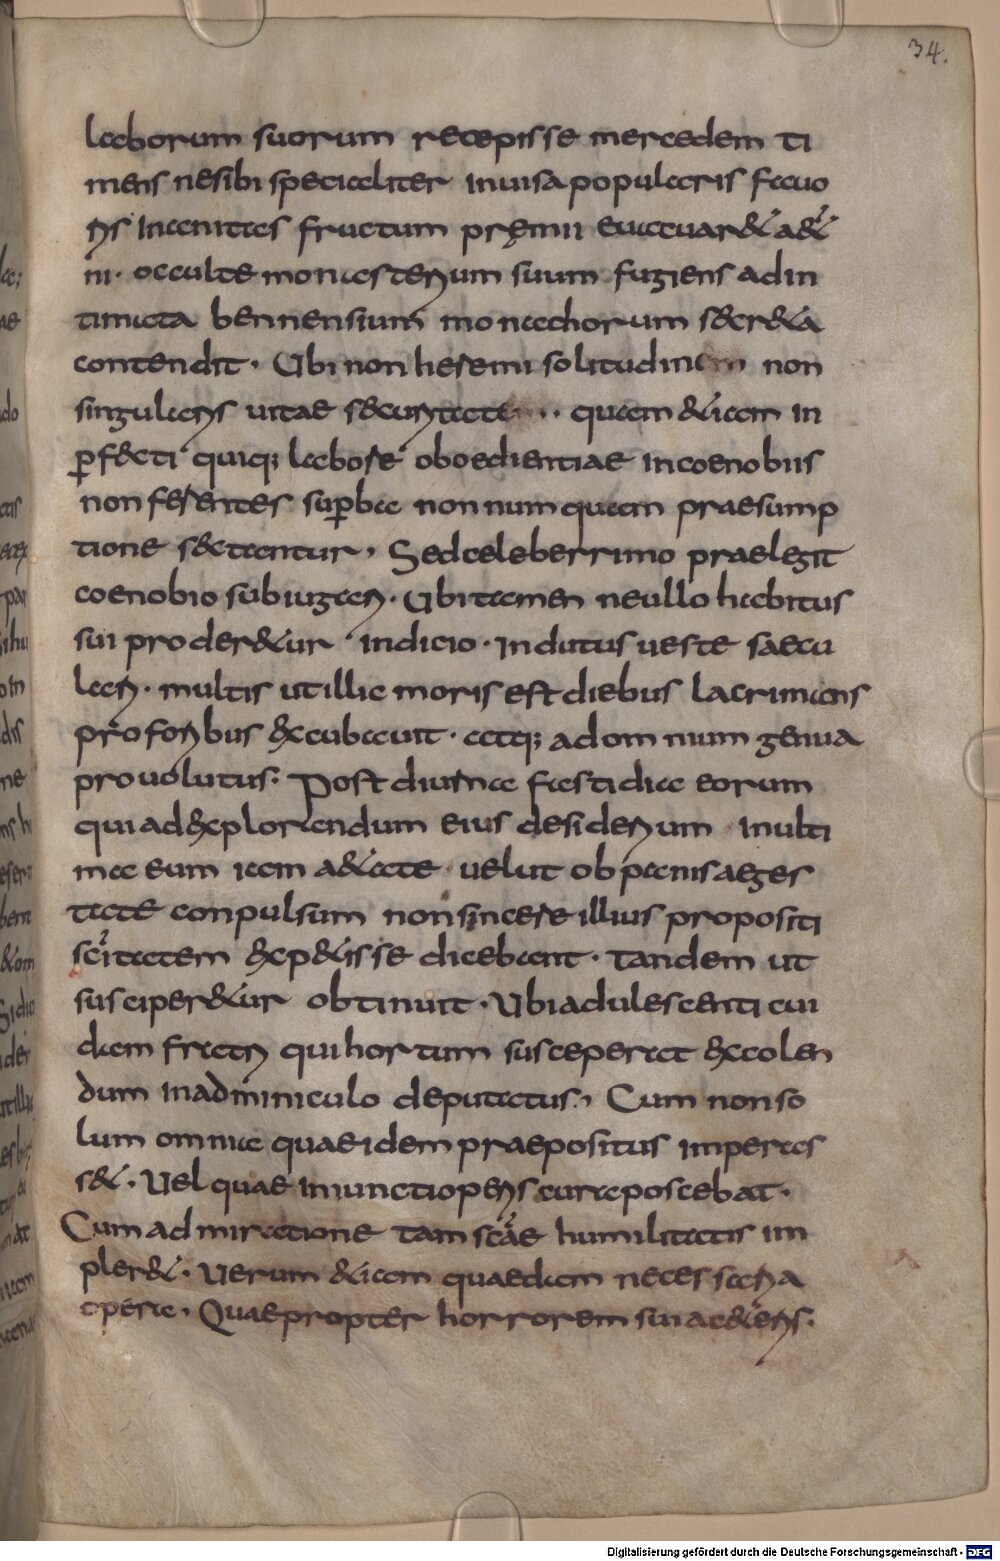 34.
laborum suorum recepisse mercedem ti
mens nesibi specialiter inuisa popularis fauo
ris inanitas fructum pręmii euacuar& a&er
ni. occulte monasterium suum fugiens ad in
timata bennensium monachorum secr&a
contendit. Ubi non heremi solitudinem non
singularis uitae securitate.. quam &iam in
ꝑfecti quiq; labore oboedientiae incoenobiis
non ferentes suꝑba non numquam praesump
tione sectantur, Sed celeberrimo praelegit
coenobio subiugari. Ubi tamen neullo habitus
sui proder&ur indicio. Indutus ueste saecu
lari. multis utillic moris est diebus lacrimans
pro foribus excubauit. atq; ad omnium genua
prouolutus. Post diuina fastidia eorum
qui ad explorandum eius desiderium inulti
ma eum iam a&ate uelut ob panis aeges
tate conpulsum non sincere illius propositi
sc̄itatem exp&isse dicebant. tandem ut
susciper&ur obtinuit. Ubi adulescenti cui
dam fratri qui hortum susceperat excolen
dum in adminiculo deputatus., Cum non so
lum omnia quae idem praepositus imperas
s&. Uel quae iniuncti operis cura poscebat.
Cum admiratione tam sc̄ae humilitatis im
pler&. Uerum &iam quaedam necessaria
opera. Quae propter horrorem sui a c&eris.
Digitalisierung gefördert durch die Deutsche Forschungsgemeinschaft - DFG